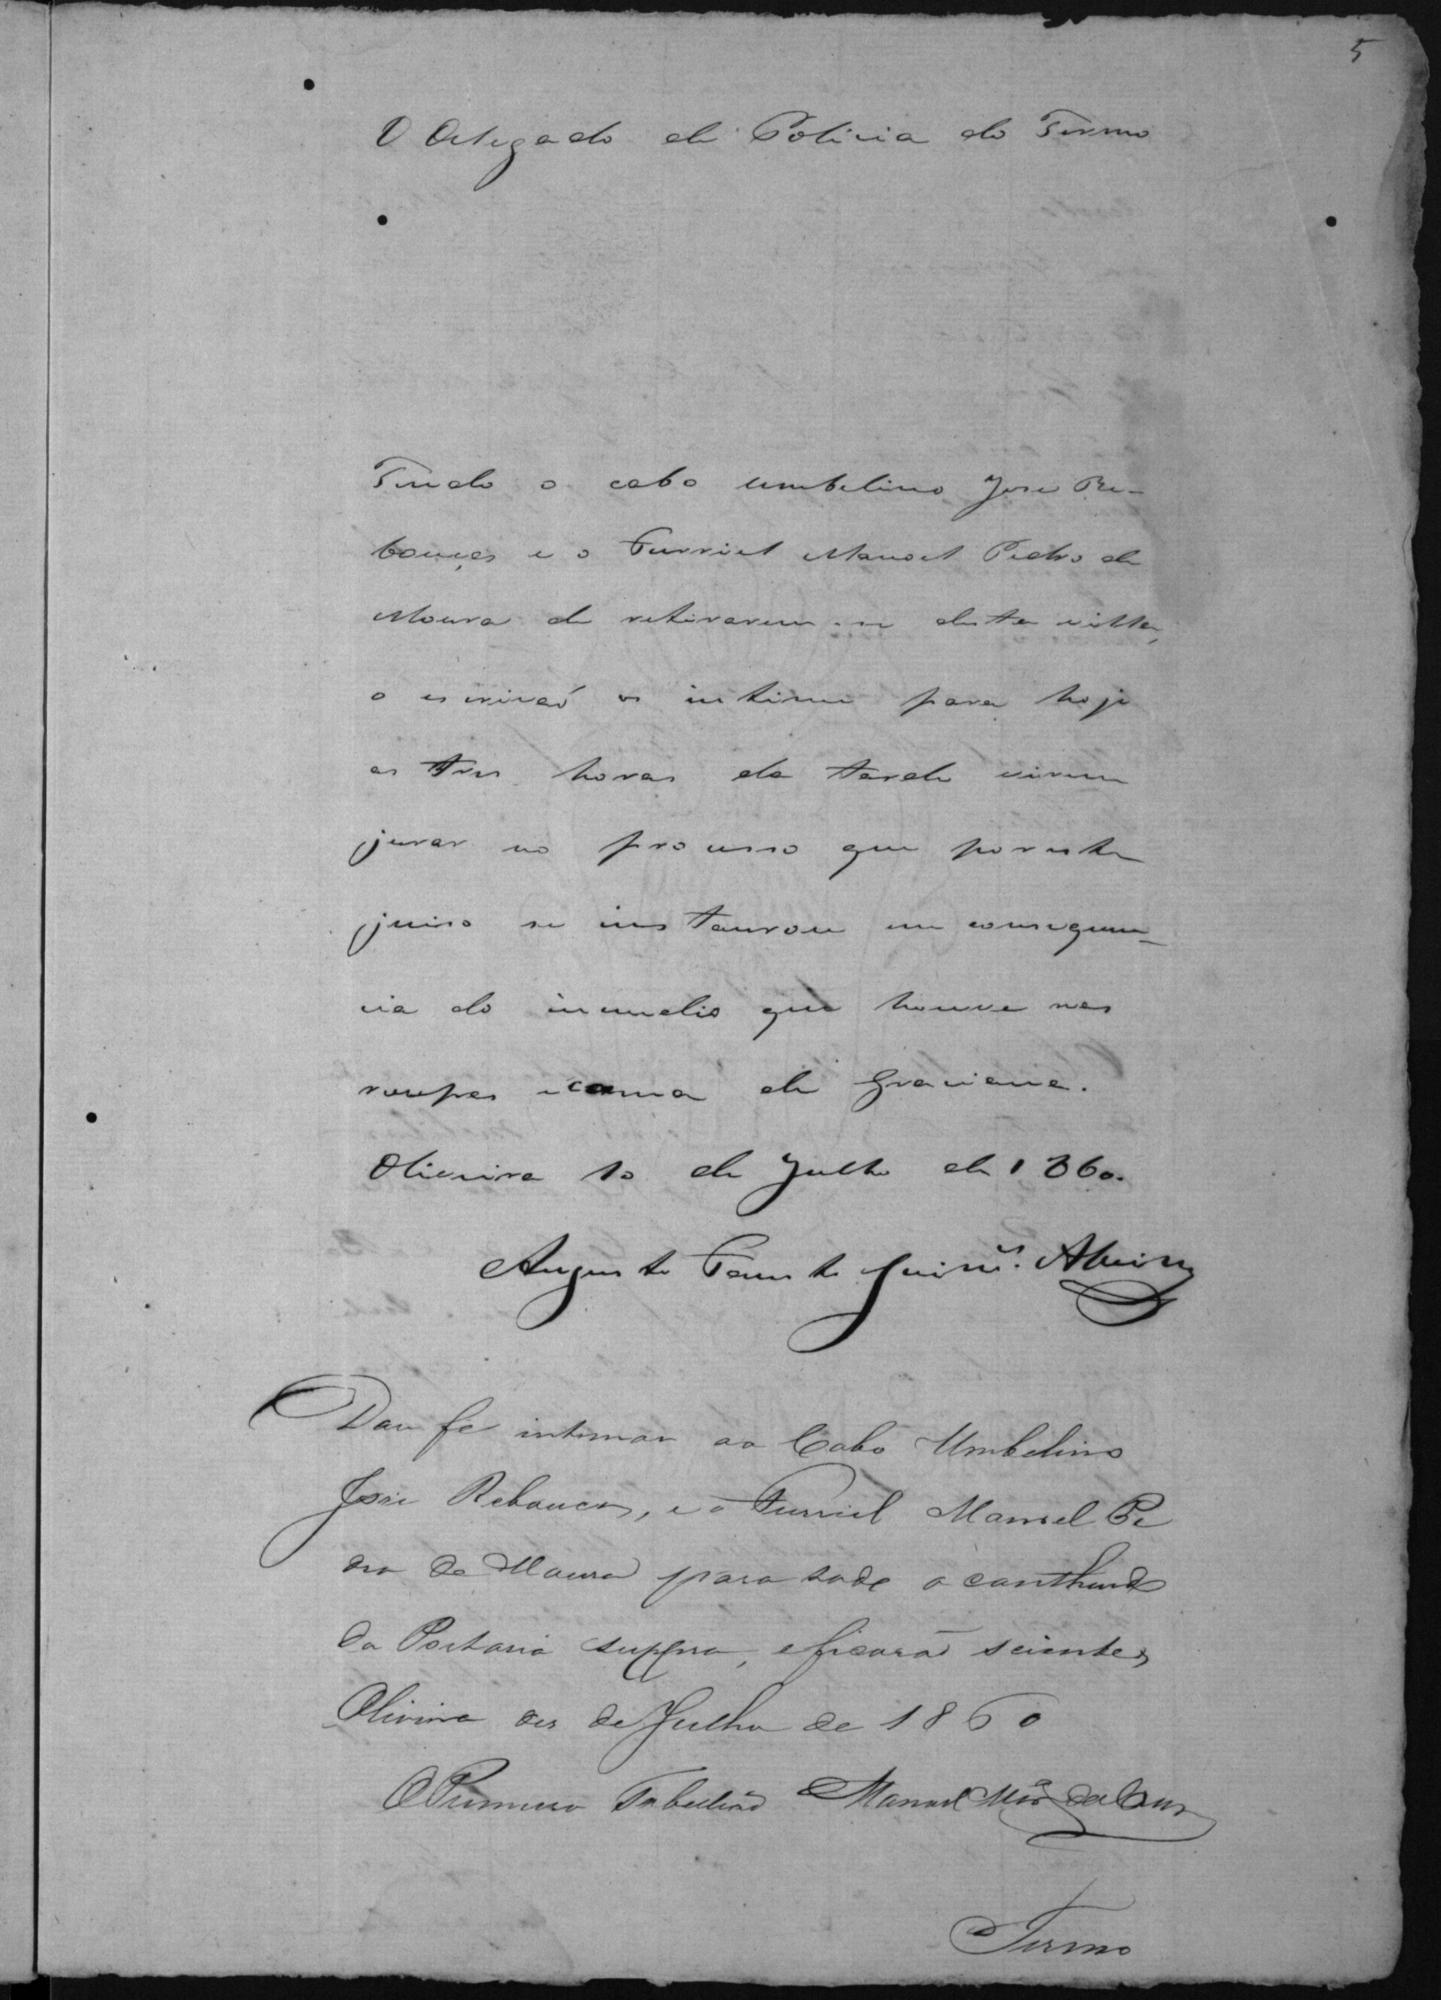 5
O Delegado de Policia do Termo
Tendo o cabo Umbelino Jose Re-
bouças e o Furriel Manoel Pedro de
Moura de retirarem-se desta villa,
o escrivaõ os intime para hoje
as tres horas da tarde virem
jurar no processo que por este
juiso se instaurou em consequen-
cia do incendio que houve nas
roupas e cama de Graciana.
Oliveira 10 de Julho de 1860.
Augusto Fausto Guim.es
Dou fé intimar ao Cabo Umbelino
José Rebouças, e o Furriel Manoel Pe
dro de Moura para todo o contheudo
da Portaria supra, e ficaraõ scientes
Oliveira des de Julho de 1860
O Primeiro Tabelliaõ Manoel da Crus
Termo